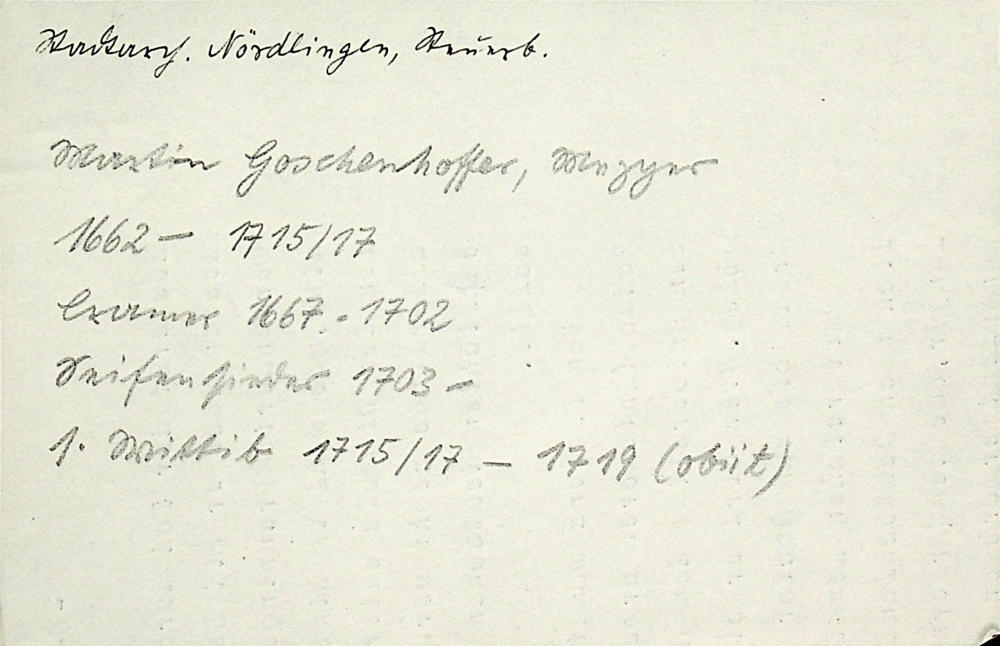 Stadtarch. Nördlingen, Steuerb.
Martin Goschenhoffer, Mezger
1662 – 1715/17
Cramer 1667 - 1702
Seifensieder 1703 –
s. Wittib 1715/17 – 1719 (obiit)